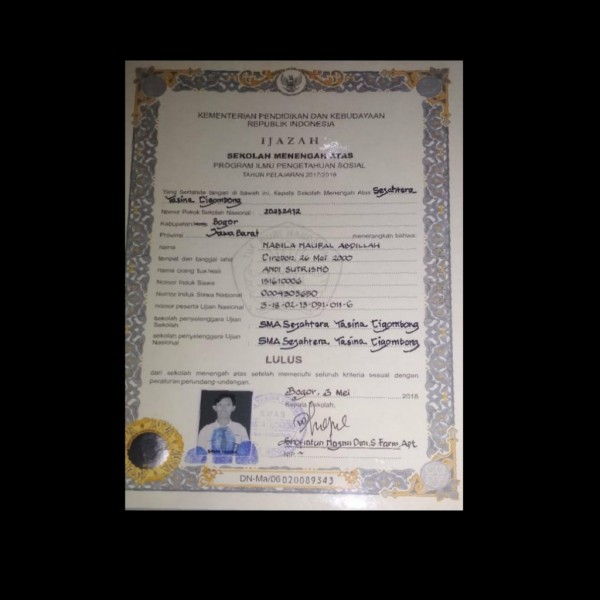 KEMENTERIAN PENDIDIKAN DAN KEBUDAYAAN
REPUBLIK INDONESIA
IJAZAH
SEKOLAH MENENGAH ATAS
PROGRAM ILMU PENGETAHUAN SOSIAL
TAHUN PELAJARAN 2017/2018
Yang bertanda tangan di bawah ini, Kepala Sekolah Menengah Atas Sejahtera
Yasina Cigombong
Nomor Pokok Sekolah Nasional : 20232472
Kabupaten Bogor
Provinsi Jawa Barat menerangkan bahwa:
nama NABILA NAUFAL ABDILLAH
tempat dan tanggal lahir Cirebon, 26 Mei 2000
nama orang tua/wali ANDI SUTRISNO
nomor induk siswa 151610006
nomor induk siswa nasional 0004303650
nomor peserta Ujian Nasional 3-18-02-13-091-011-6
sekolah penyelenggara Ujian
Sekolah SMA Sejahtera Yasina Cigombong
sekolah penyelenggara Ujian
Nasional SMA Sejahtera Yasina Cigombong
LULUS
dari sekolah menengah atas setelah memenuhi seluruh kriteria sesuai dengan
peraturan perundang-undangan.
Bogor, 3 Mei 2018
Kepala Sekolah,
S. Farm, Apt
NIP. -
DN-Ma/06 020089343